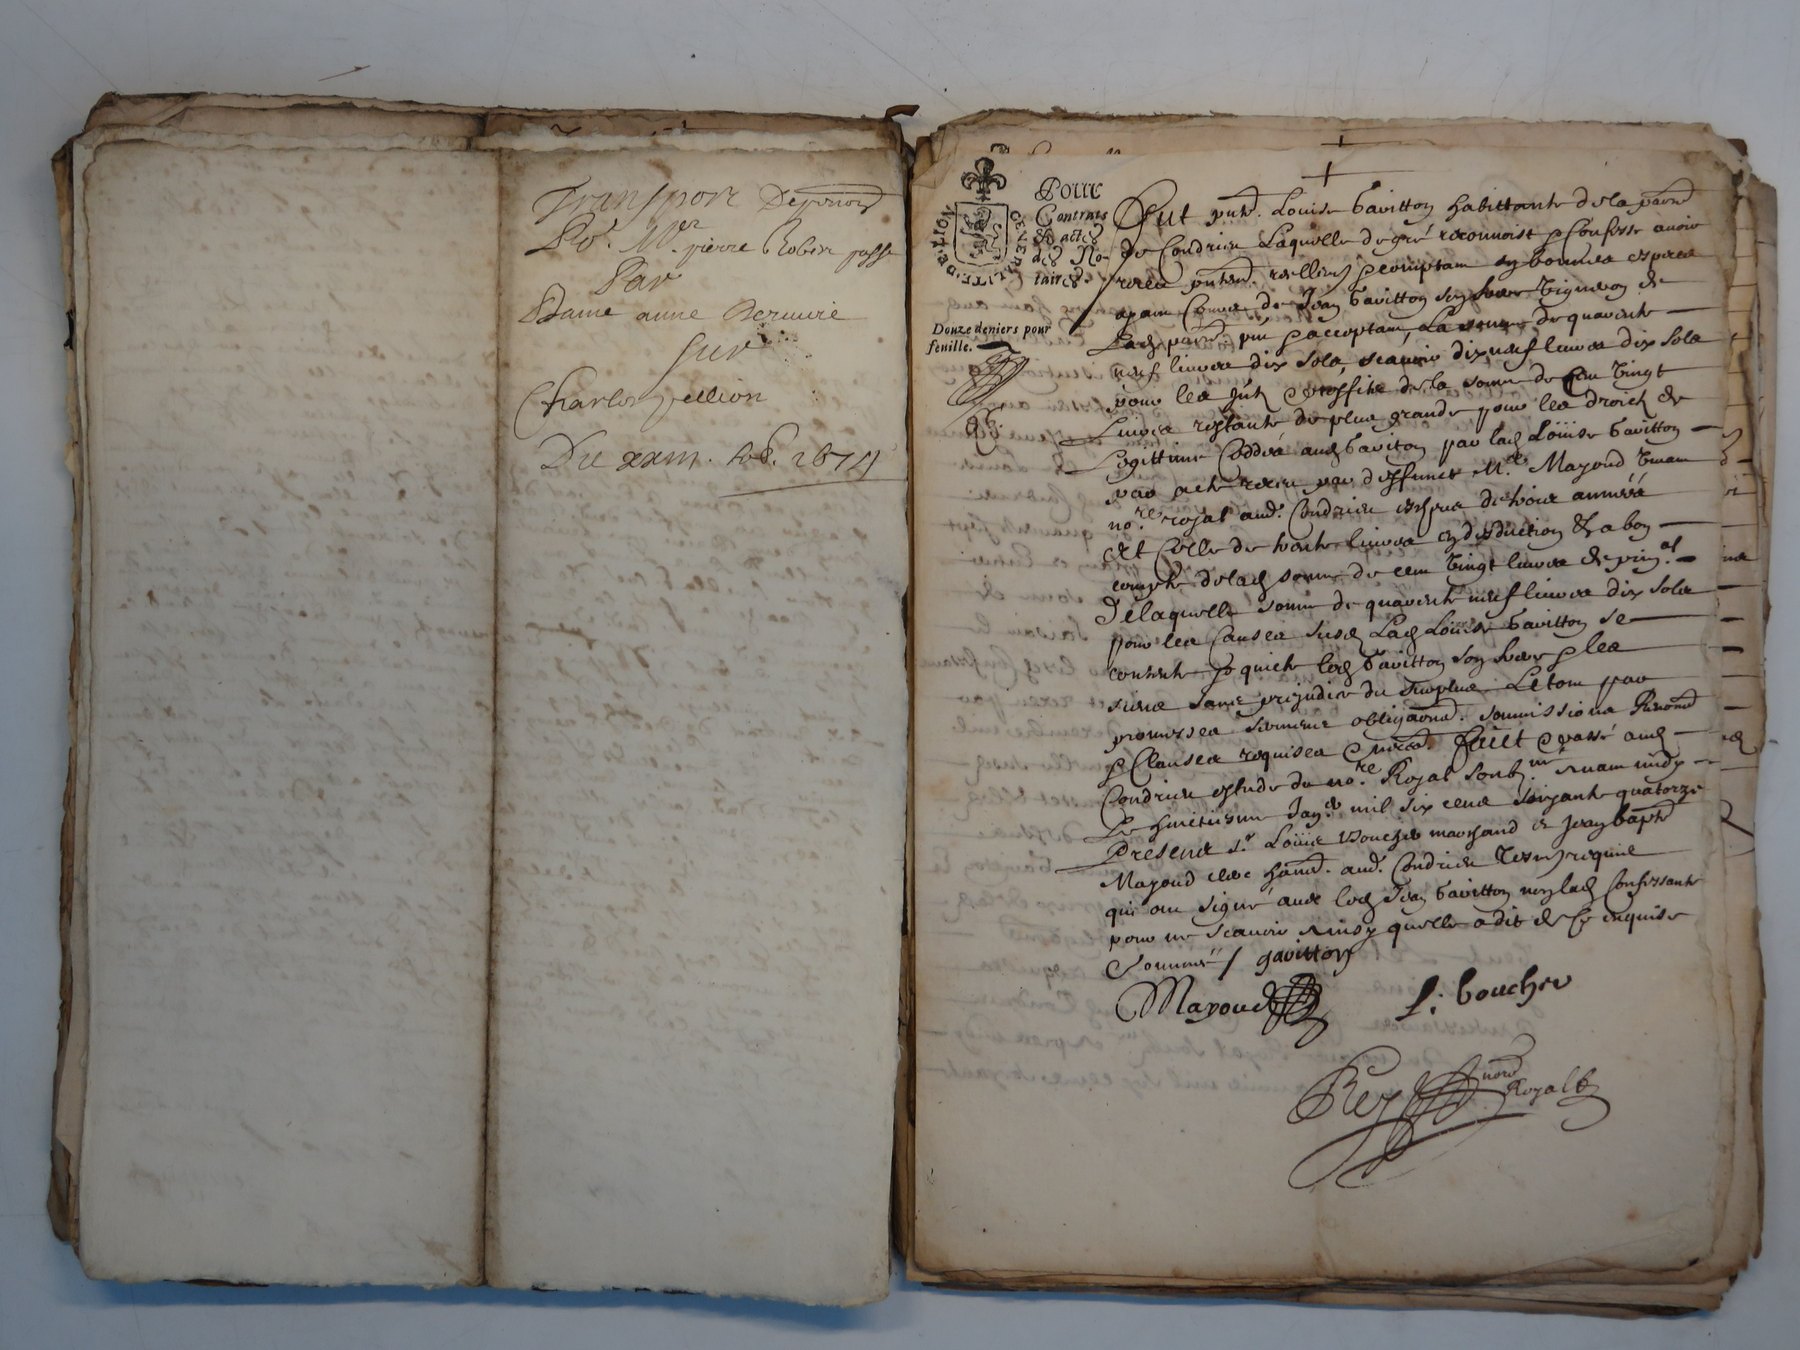 Transport De pension
Pour Mer pierre Robin passé
Par
Dame anne Bermire
sur
Charles jullion
Du xxiii. feb. 1674
GENERALITE DE LION
Pour
Contrats
& actes
des No-
taires
Douze deniers pour
feuille.
Fut pnte. Louise Gavitton habittante de la parre
de Condrieu Laquelle de gré reconnoist & Confesse avoir
receu reellemt & comptam en bonnes espece
ayant Cours, de Jean Gavitton son frere Vigneron de
Lad parre pnt & acceptam, La somme de quarente
neuf livres dix sols, scavoir dix neuf livres dix sols
pour les & proffits de la somme de Cen Vingt
Livres restante de plus grande pour les droict de
Legittime Ceddés aud Gavitton par lad Loüise Gavitton
par acte receu par deffunct Me. Mayoud Vivant
nore. royal aud. Condrieu années
Et Celle de trente livres en desduction & a bon
compte de lad somme de cen Vingt livres de prinal.
De laquelle somme de quarente neuf livres dix sols
pour les Causes susd Lad Louise Gavitton se
contente & quicte led Gavitton son frere & les
siens sans prejudice du surplus Le tout par
promesses serment obligaons. soumissions Renons
& Clauses requises & necess. Faict & passé aud
Condrieu estude du nore. Royal soubz.né avant midy
Le huictiesme Janer. mil six cens soixante quatorze
Presens sr. Loüis Boucher marchand & Jean bapte
Mayoud clerc habit. aud. Condrieu tesm requis
qui ont signé avec led Jean Gavitton non lad Confessante
pour ne scavoir Ainsy quelle a dit de ce enquise
& sommée / gavitton
Mayoud
L: boucher
Rey nore
Royal